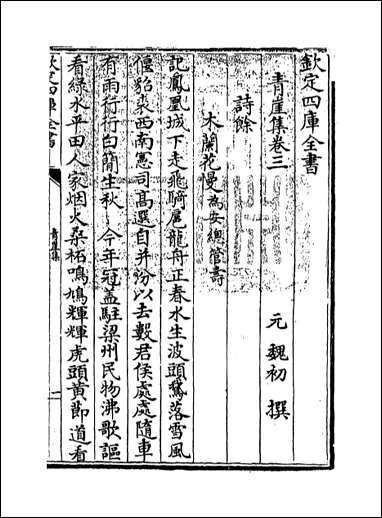 欽定四庫全書
青崖集卷三
元 魏初 撰
詩餘
木蘭花慢為安總管壽
記鳳凰城下走飛騎扈龍舟正春水生波頭鵞落雪風
偃貂裘西南憲司高選自并汾以去數君侯處處隨車
有雨行行白簡生秋 今年冠蓋駐梁州民物沸歌謳
看綠水平田人家烟火桑柘鳴鳩輝輝虎頭黄節道看
欽定四庫全書
青崖集
一